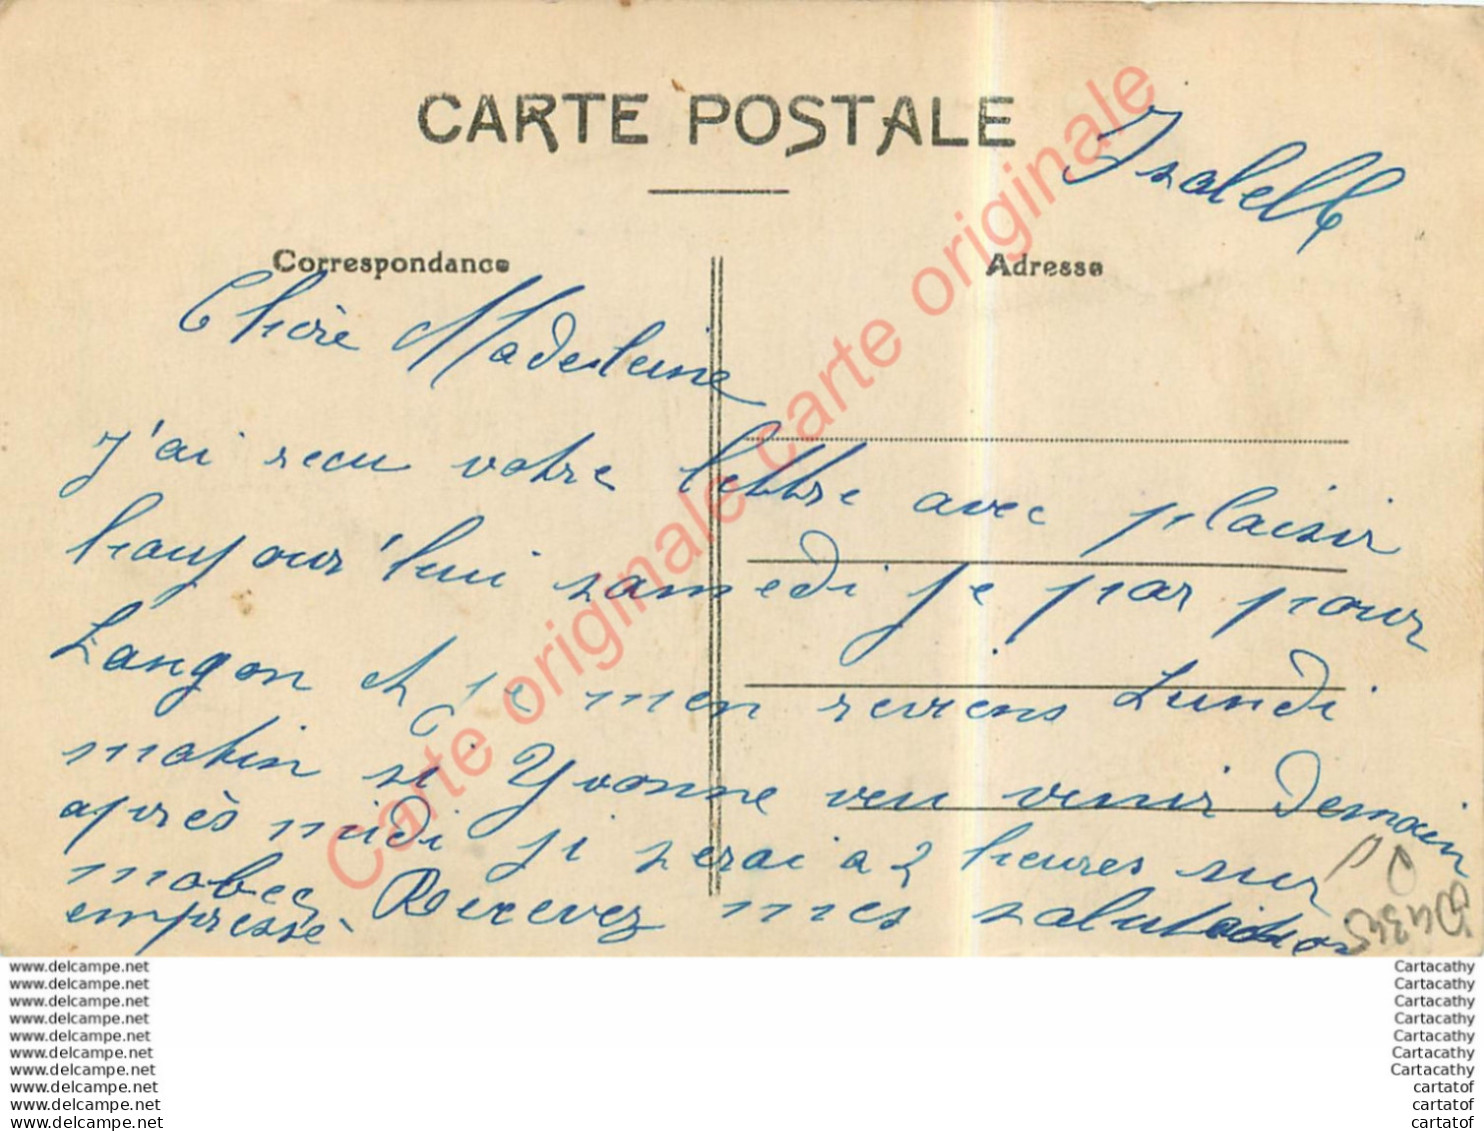 CARTE POSTALE
Isabelle
Correspondance
Adresse
Chère Madeleine
J'ai recu votre lettre avec plaisir
haujour'hui samedi je par pour
Langon et je men reviens Lundi
matin si Yvonne veu venir Demain
après midi ji serai a 2 heures sur
Recevez mes salutations
empressé
Carte originale carte originale carte originale
www.delcampe.net
www.delcampe.net
www.delcampe.net
www.delcampe.net
www.delcampe.net
www.delcampe.net
www.delcampe.net
www.delcampe.net
www.delcampe.net
www.delcampe.net
Cartacathy
Cartacathy
Cartacathy
Cartacathy
Cartacathy
Cartacathy
Cartacathy
cartatof
cartatof
cartatof